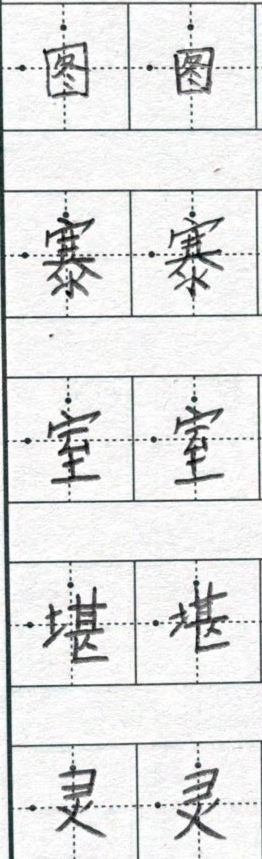 图 图
寨 寨
室 室
堪 堪
灵 灵